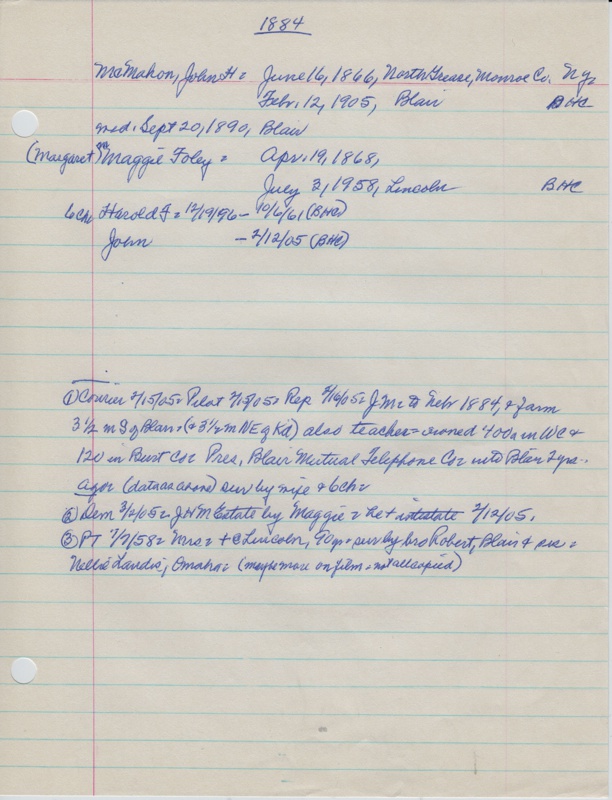 1884
McMahon, John H = June 16, 1866, North Greece, Monroe Co. Ny.
Febr. 12, 1905, Blair BHC
md. Sept 20, 1890, Blair
(Margaret) Maggie Foley = Apr. 19, 1868,
July 2, 1958, Lincoln BHC
6ch Harold F = 12/19/96 - 10/6/61 (BHC)
John - 2/12/05 (BHC)
① Courier 2/15/05 = Pilot 2/15/05 = Rep 2/16/05 = J Mc to Nebr 1884, + farm
3 1/2 m S of Blair = (+ 3 1/2 m NE of Kd) also teacher = owned 400a in WC +
120 in Burt Co = Pres, Blair Mutual Telephone Co = into Blair 2 yrs.
ago = (data as above) sur by wife + 6ch =
② Dem 3/2/05 = JHM Estate by Maggie = he + intestate 2/12/05.
③ PT 7/7/58 = Mrs = + @ Lincoln, 90 yr = sur by bro Robert, Blair + sis =
Nellie Landis, Omaha = (maybe more on film = not all copied)